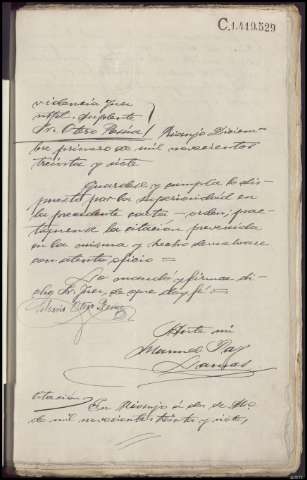 C.1.419.529
videncia Juez
Mpl. Suplente
Sr. Otero Reina / Rianjo Diciem-
bre primero de mil novecientos
treinta y siete
Guardese y cumpla lo dis-
puesto por la superioridad en
la precedente carta-orden; prac-
tiquense la citacion prevenida
en la misma y hecho devuelvase
con atento oficio =
Lo mandó y firma di-
cho Sr. Juez, de que doy fé =
Otero Reina
Ante mi
Manuel Paz
Citacion / En Rianjo á dos de Dbre
de mil novecientos treinta y siete,